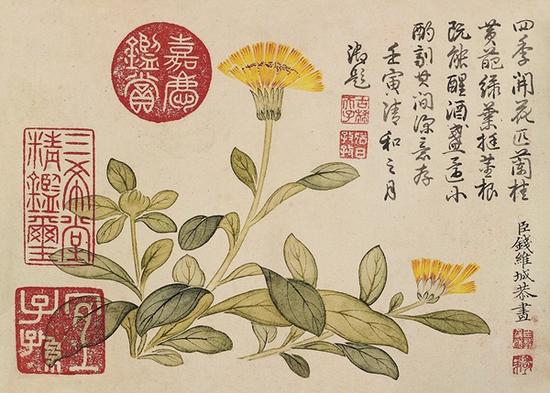 四季開花匹蘭桂
黃葩綠葉挺莖根
既能醒酒盞還小
酌劑其間深意存
壬寅清和之月
御題
古稀天子
臣錢維城恭畫
嘉慶鑑賞
三希堂精鑑璽
宜子孫